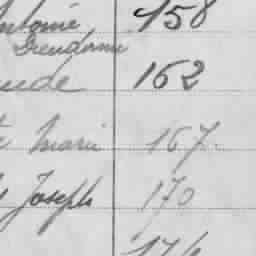 Antoine 158
Gendarme
aude 162
Marie 167.
Joseph 170